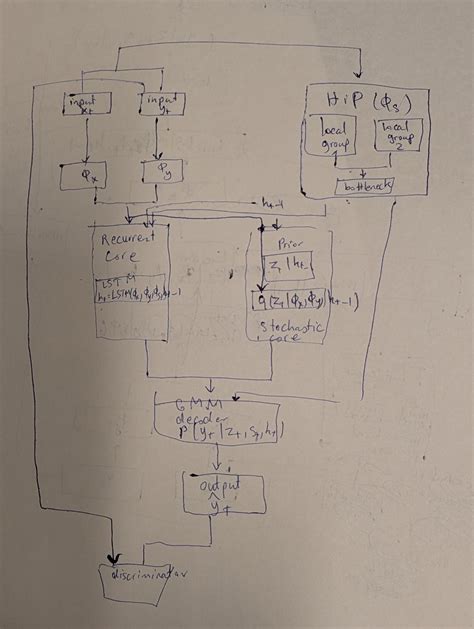 input
x_t
input
y_t
HiP (ϕ_s)
local
group
1
local
group
2
bottleneck
ϕ_x
ϕ_y
h_t-1
Recurrent
core
LSTM
h_t=LSTM(ϕ_x,ϕ_y,ϕ_s,h_t-1
Prior
z_t|h_t-1
q(z_t|ϕ_x,ϕ_y,h_t-1)
stochastic
core
GMM
decoder
P(y_t|z_t,s_t,h_t)
output
ŷ_t
discriminator